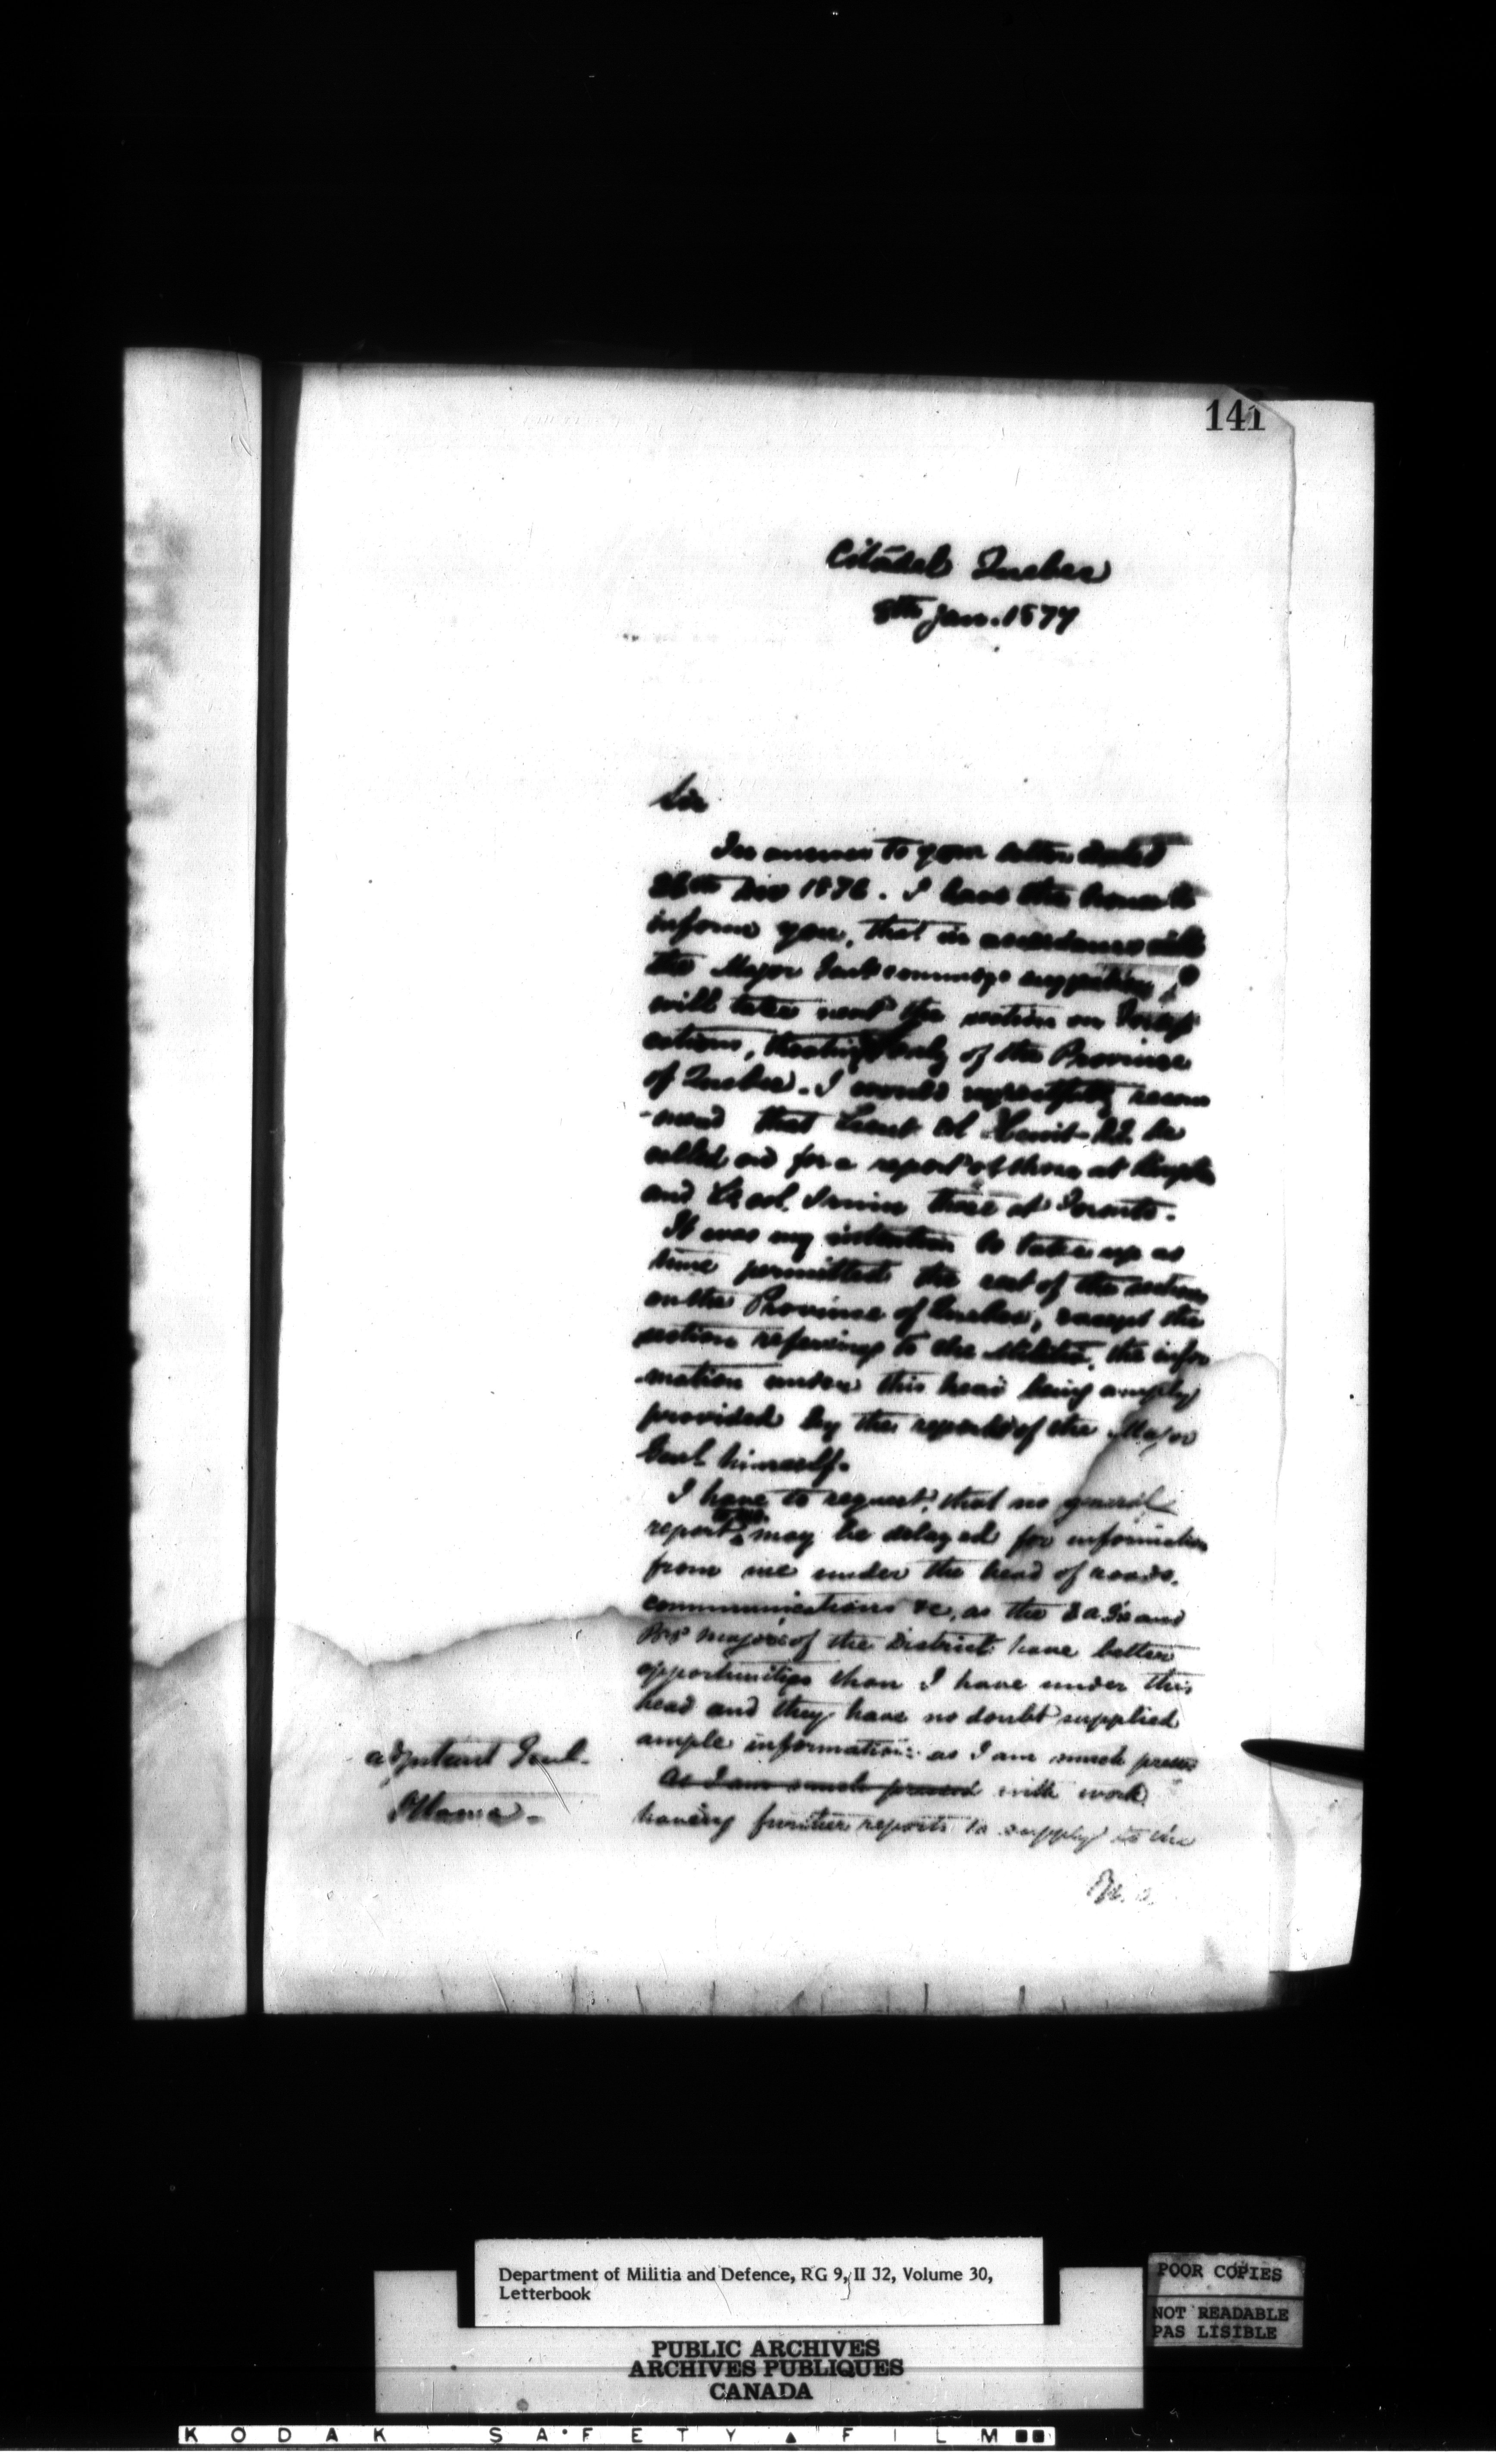 141
Citadel Quebec
8th Jan. 1877
Sir
In answer to your letter dated
26th 1876. I have the honor to
inform you, that in accordance with
the Major Genl commdgs suggestion, I
will take next the section on Fortifi
cations, treating only of the Province
of Quebec. I would respectfully recom
-mend that Lieut Col Hewitt R.E. be
called on for a report of those at Kingston
and Lt Col. Irwin those at Toronto.
It was my intention to take up as
time permitted the rest of the sections
on the Province of Quebec, except the
section referring to the Militia, the infor
-mation under this head being amply
provided by the reports of the Major
Genl himself.
I have to request, that no general
report may be delayed for information
from me under the head of roads,
communications &c, as the D.A.G's and
Brig Majors of the District have better
opportunities than I have under this
head and they have no doubt supplied
ample information: as I am much pressed
As I am much pressed with work
having further reports to supply to the
Adjutant Genl.
Ottawa.
Department of Militia and Defence, RG 9, II J2, Volume 30,
Letterbook
PUBLIC ARCHIVES
ARCHIVES PUBLIQUES
CANADA
POOR COPIES
NOT READABLE
PAS LISIBLE
KODAK SAFETY FILM